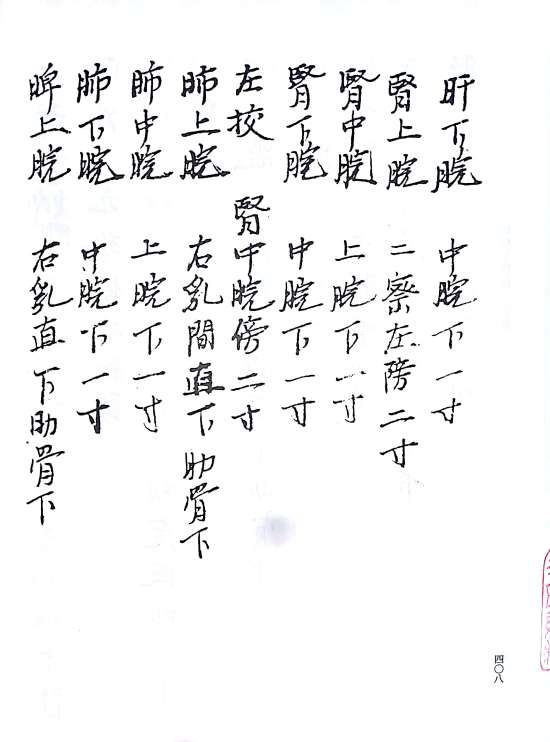 肝下脘 中脘下一寸
腎上脘 二察左陦二寸
腎中脘 上脘下一寸
腎下脘 中脘下一寸
左挍 腎中脘傍二寸
肺上脘 右乳間直下肋骨下
肺中脘 上脘下一寸
肺下脘 中脘下一寸
脾上脘 右乳直下肋骨下
四〇八